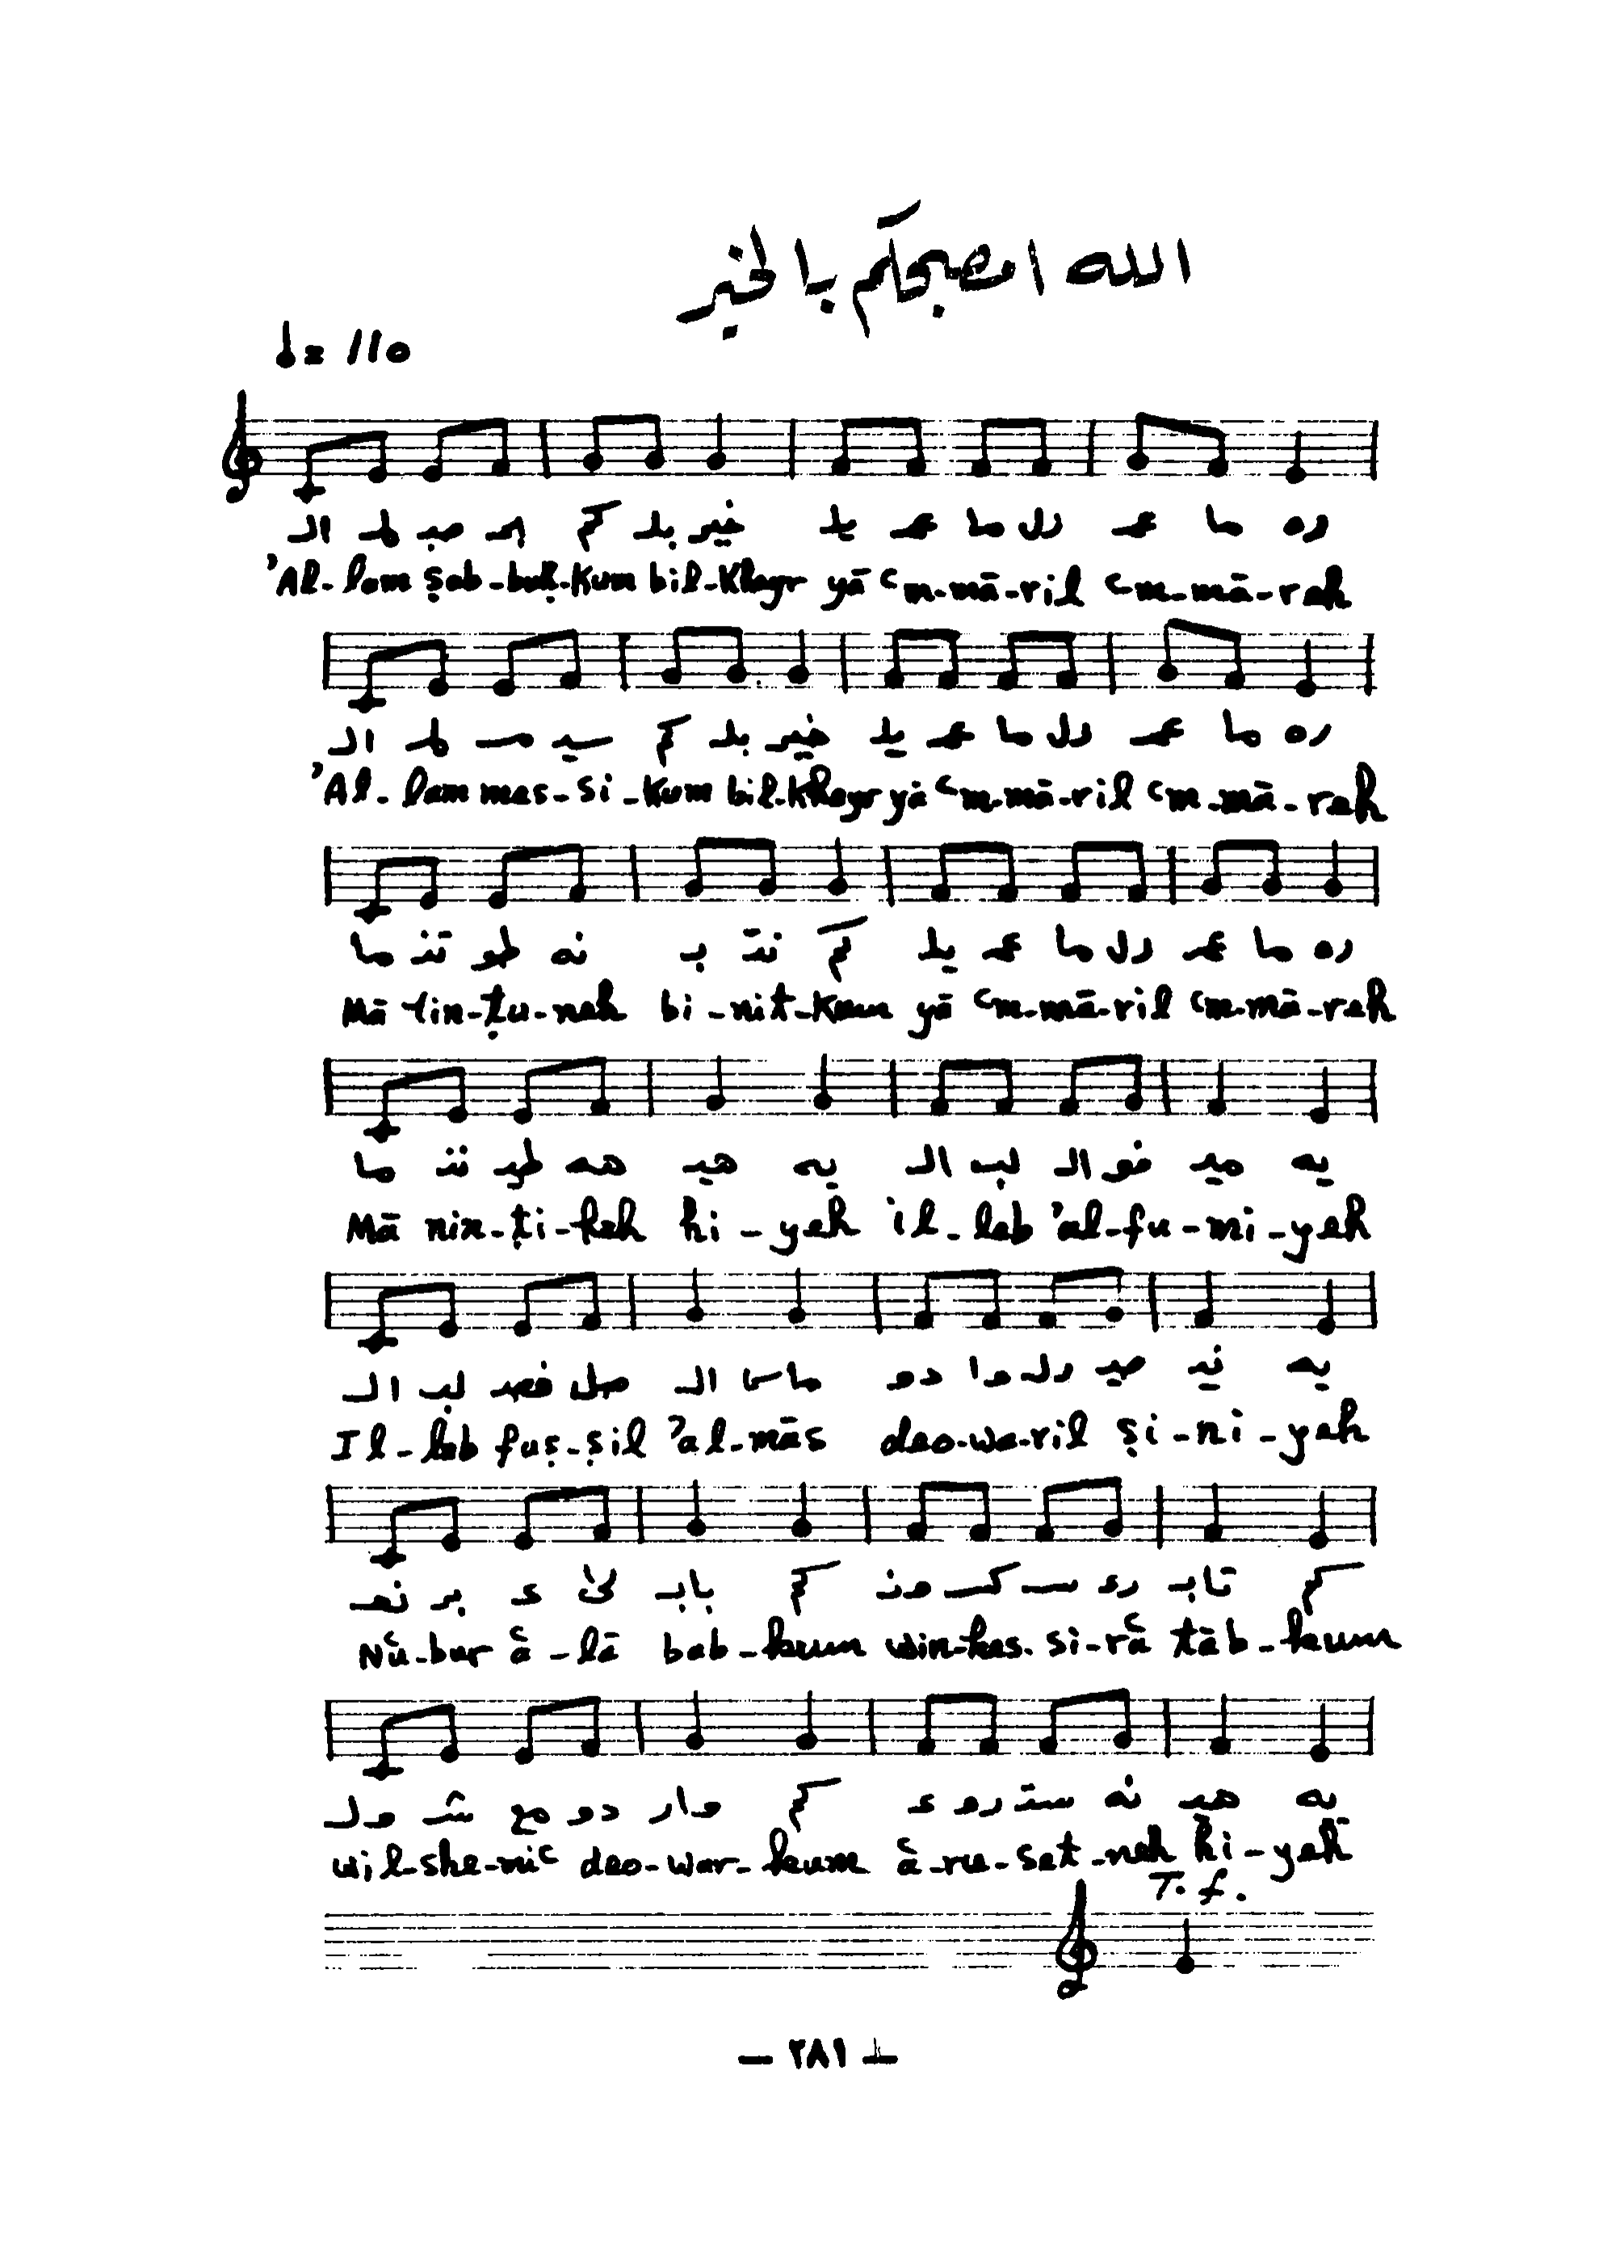 الله امصبحكم بالخير
♩= 110
الـ لمـ صبـ بحـ كم بلـ خير يلـ عمـ ما رل عمـ ما ره
'Al-lam ṣab-baḥ-Kum bil-Khayr yā ᶜm-mā-ril ᶜm-mā-rah
الـ لمـ مسـ سيـ كم بلـ خير يلـ عمـ ما رل عمـ ما ره
'Al-lam mas-si-Kum bil-Khayr yā ᶜm-mā-ril ᶜm-mā-rah
ما تنـ طو نه بـ نتـ كم يلـ عمـ ما رل عمـ ما ره
Mā tin-ṭu-nah bi-nit-Kum yā ᶜm-mā-ril ᶜm-mā-rah
ما ننـ طيـ هه هيـ يه الـ لب الـ فو ميـ يه
Mā nin-ṭi-hah hi-yah 'il-lab 'al-fu-mi-yah
الـ لب فصـ صل الـ ماس دو وا رل صيـ نيـ يه
Il-lab fuṣ-ṣil 'al-mās dao-wa-ril ṣi-ni-yah
نعـ بر ع لى باب كم ونـ كسـ سـ رع تابـ كم
Nù-bur à-lā bab-kum win-kas-si-rà tāb-kum
ولـ شـ مع دو وار كم ع رو ستـ نه هيـ يه
wil-she-miᶜ dao-war-kum à-ru-sat-nah hi-yah
T. f.
— ٢٨١ —